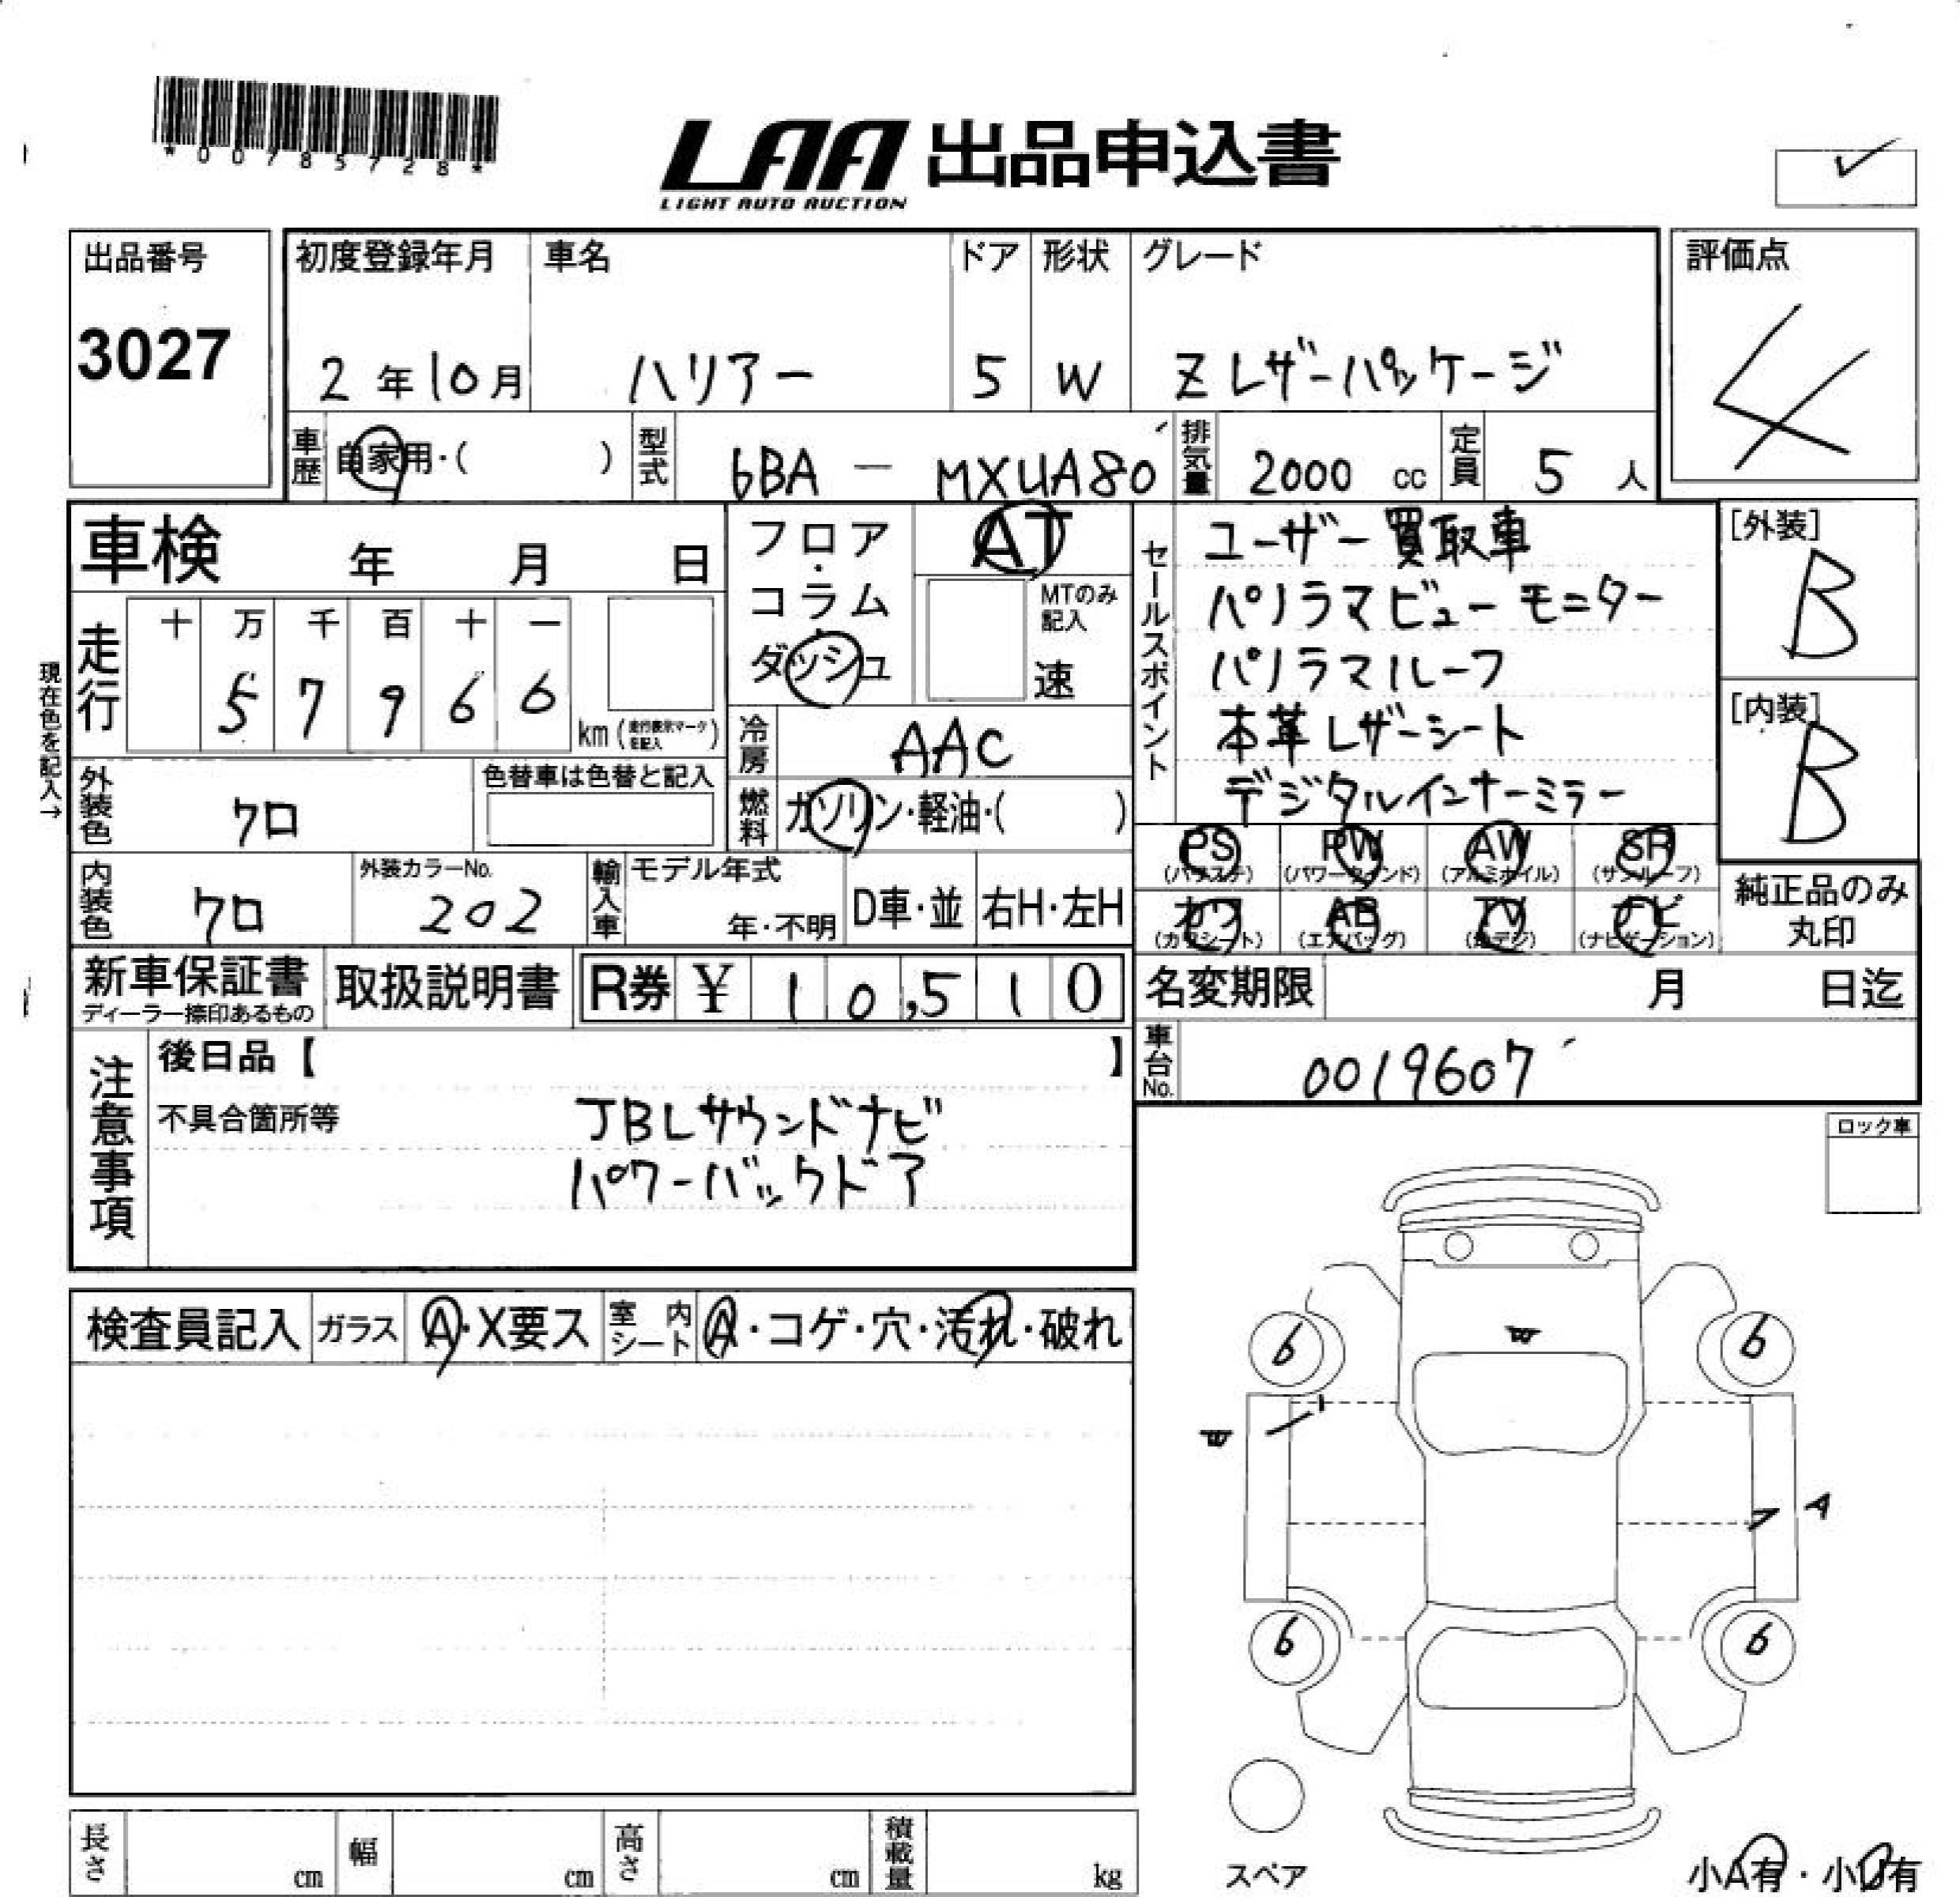 *00785728*
LAA 出品申込書
LIGHT AUTO AUCTION
出品番号
3027
初度登録年月 車名 ドア 形状 グレード
2年10月 ハリアー 5 W Zレザーパッケージ
評価点
4
車歴 自家用・( ) 型式 6BA - MXUA80 排気量 2000 cc 定員 5 人
車検 年 月 日
フロア・コラム・ダッシュ
AT
MTのみ記入
速
走行 十 万 千 百 十 一
5 7 9 6 6 km(走行表示マークを記入)
現在色を記入→
冷房 AAC
燃料 ガソリン・軽油・( )
外装色 クロ
色替車は色替と記入
内装色 クロ
外装カラーNo. 202
輸入車 モデル年式 年・不明 D車・並 右H・左H
セールスポイント
ユーザー買取車
パノラマビューモニター
パノラマルーフ
本革レザーシート
デジタルインナーミラー
[外装]
B
[内装]
B
PS (パワステ) PW (パワーウインド) AW (アルミホイル) SR (サンルーフ)
カワ (カワシート) AB (エアバッグ) TV (地デジ) ナビ (ナビゲーション)
純正品のみ丸印
新車保証書 ディーラー捺印あるもの 取扱説明書 R券 ¥ 10,510
名変期限 月 日迄
車台No. 0019607
注意事項
後日品【 】
不具合箇所等
JBLサウンドナビ
パワーバックドア
ロック車
検査員記入 ガラス A・X要ス 室内シート A・コゲ・穴・汚れ・破れ
6 6
A
6 6
スペア
長さ cm 幅 cm 高さ cm 積載量 kg
小A有・小U有